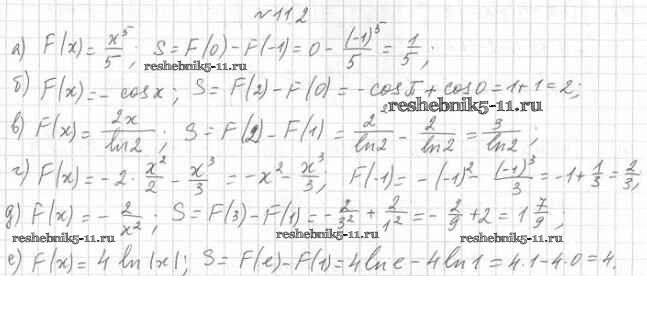 № 11.2
а) F(x) = x⁵/5; S = F(0) - F(-1) = 0 - (-1)⁵/5 = 1/5;
reshebnik5-11.ru
б) F(x) = - cos x; S = F(2) - F(0) = - cos π + cos 0 = 1+1 = 2;
reshebnik5-11.ru
в) F(x) = 2x/ln2; S = F(2) - F(1) = 2²/ln2 - 2/ln2 = 3/ln2;
г) F(x) = - 2 · x²/2 - x³/3 = -x² - x³/3; F(-1) = - (-1)² - (-1)³/3 = -1 + 1/3 = 2/3;
reshebnik5-11.ru
д) F(x) = - 2/x²; S = F(3) - F(1) = - 2/3² + 2/1² = - 2/9 + 2 = 1 7/9;
reshebnik5-11.ru reshebnik5-11.ru reshebnik5-11.ru
е) F(x) = 4 ln |x|; S = F(e) - F(1) = 4 ln e - 4 ln 1 = 4·1 - 4·0 = 4.